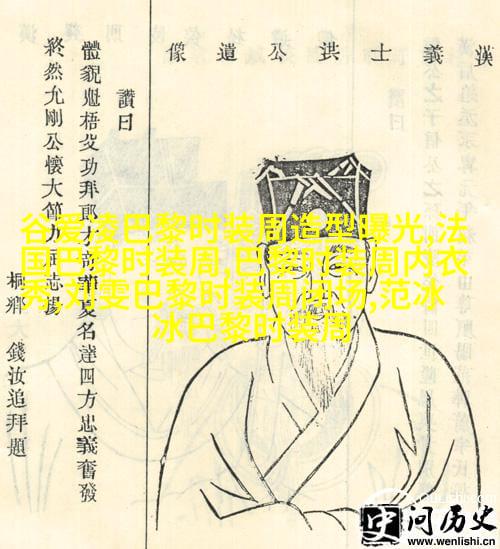 漢義士洪公遺像
讚曰
體貌魁梧父功拜郎才華夏名達四方忠義奮發
終然允剛公懷大節志揚
桐鄉 錢汝追拜題
谷爱凌巴黎时装周造型曝光,法
国巴黎时装周,巴黎时装周内衣
秀,刘雯巴黎时装周闭场,范冰
冰巴黎时装周
问历史
www.wenlishi.cn